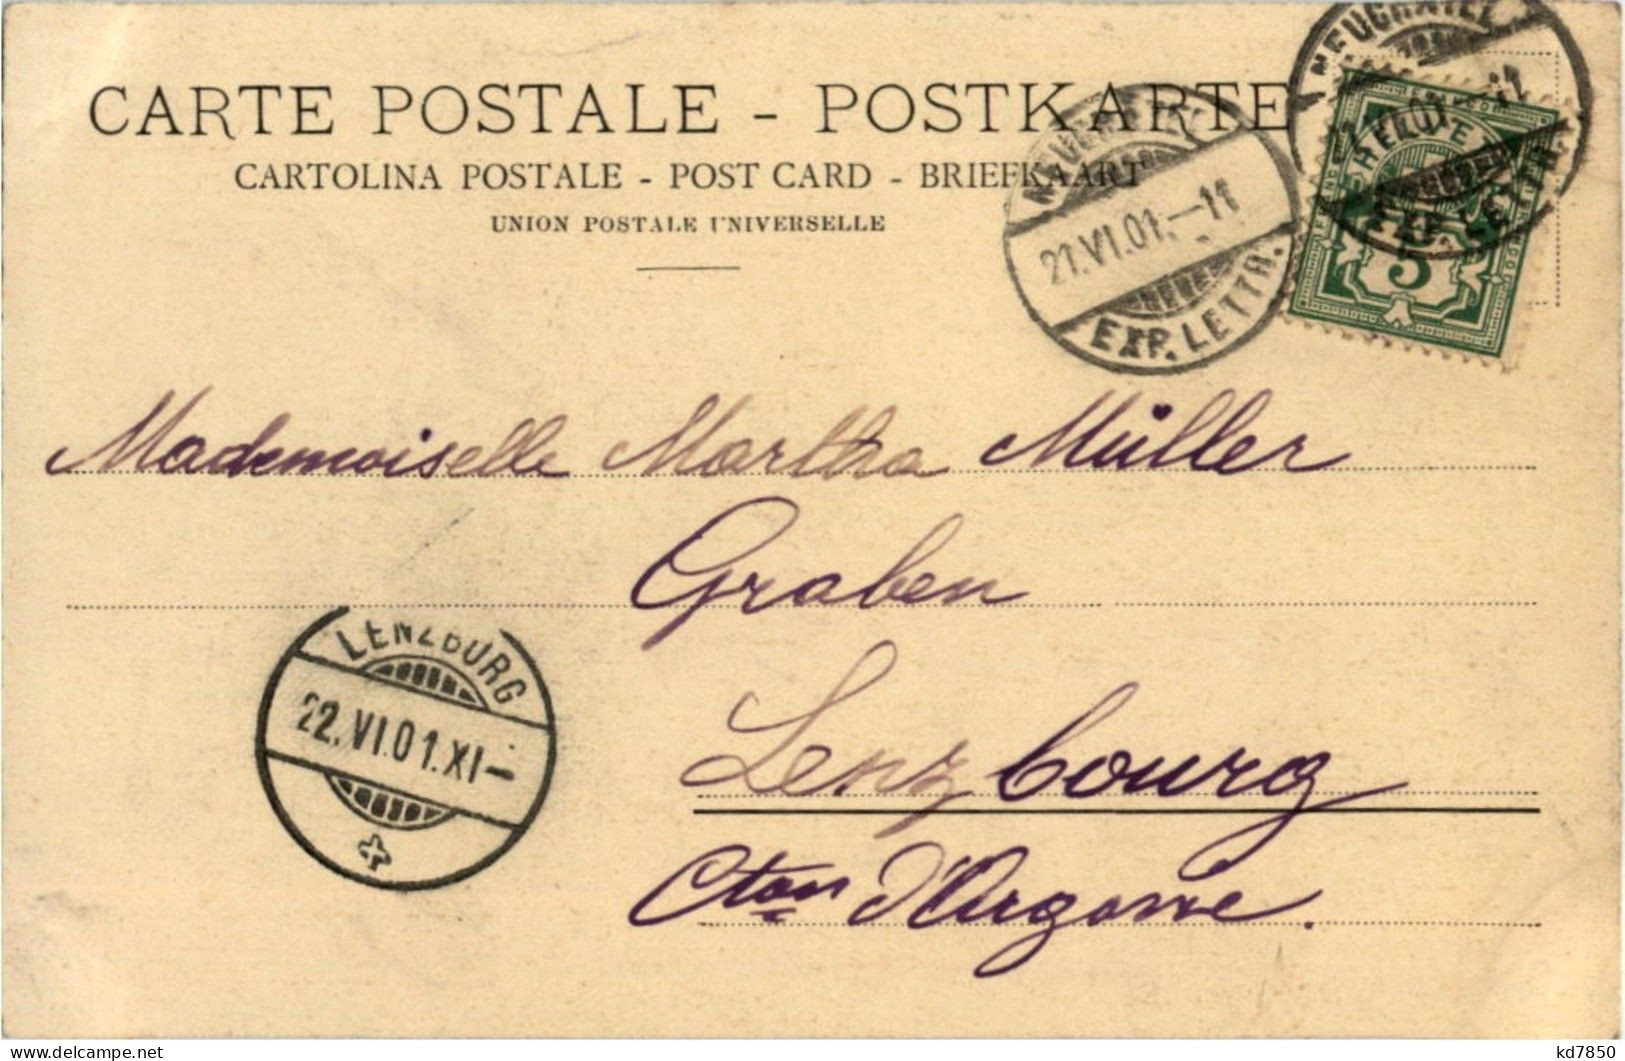 CARTE POSTALE - POSTKARTE
CARTOLINA POSTALE - POST CARD - BRIEFKAART
UNION POSTALE UNIVERSELLE
21.VI.01.-11
EXP. LETTR.
EXP. LETTR.
5
Mademoiselle Martha Müller
Graben
Lenzbourg
Cton d'Argovie.
LENZBURG
22.VI.01.XI-
kd7850